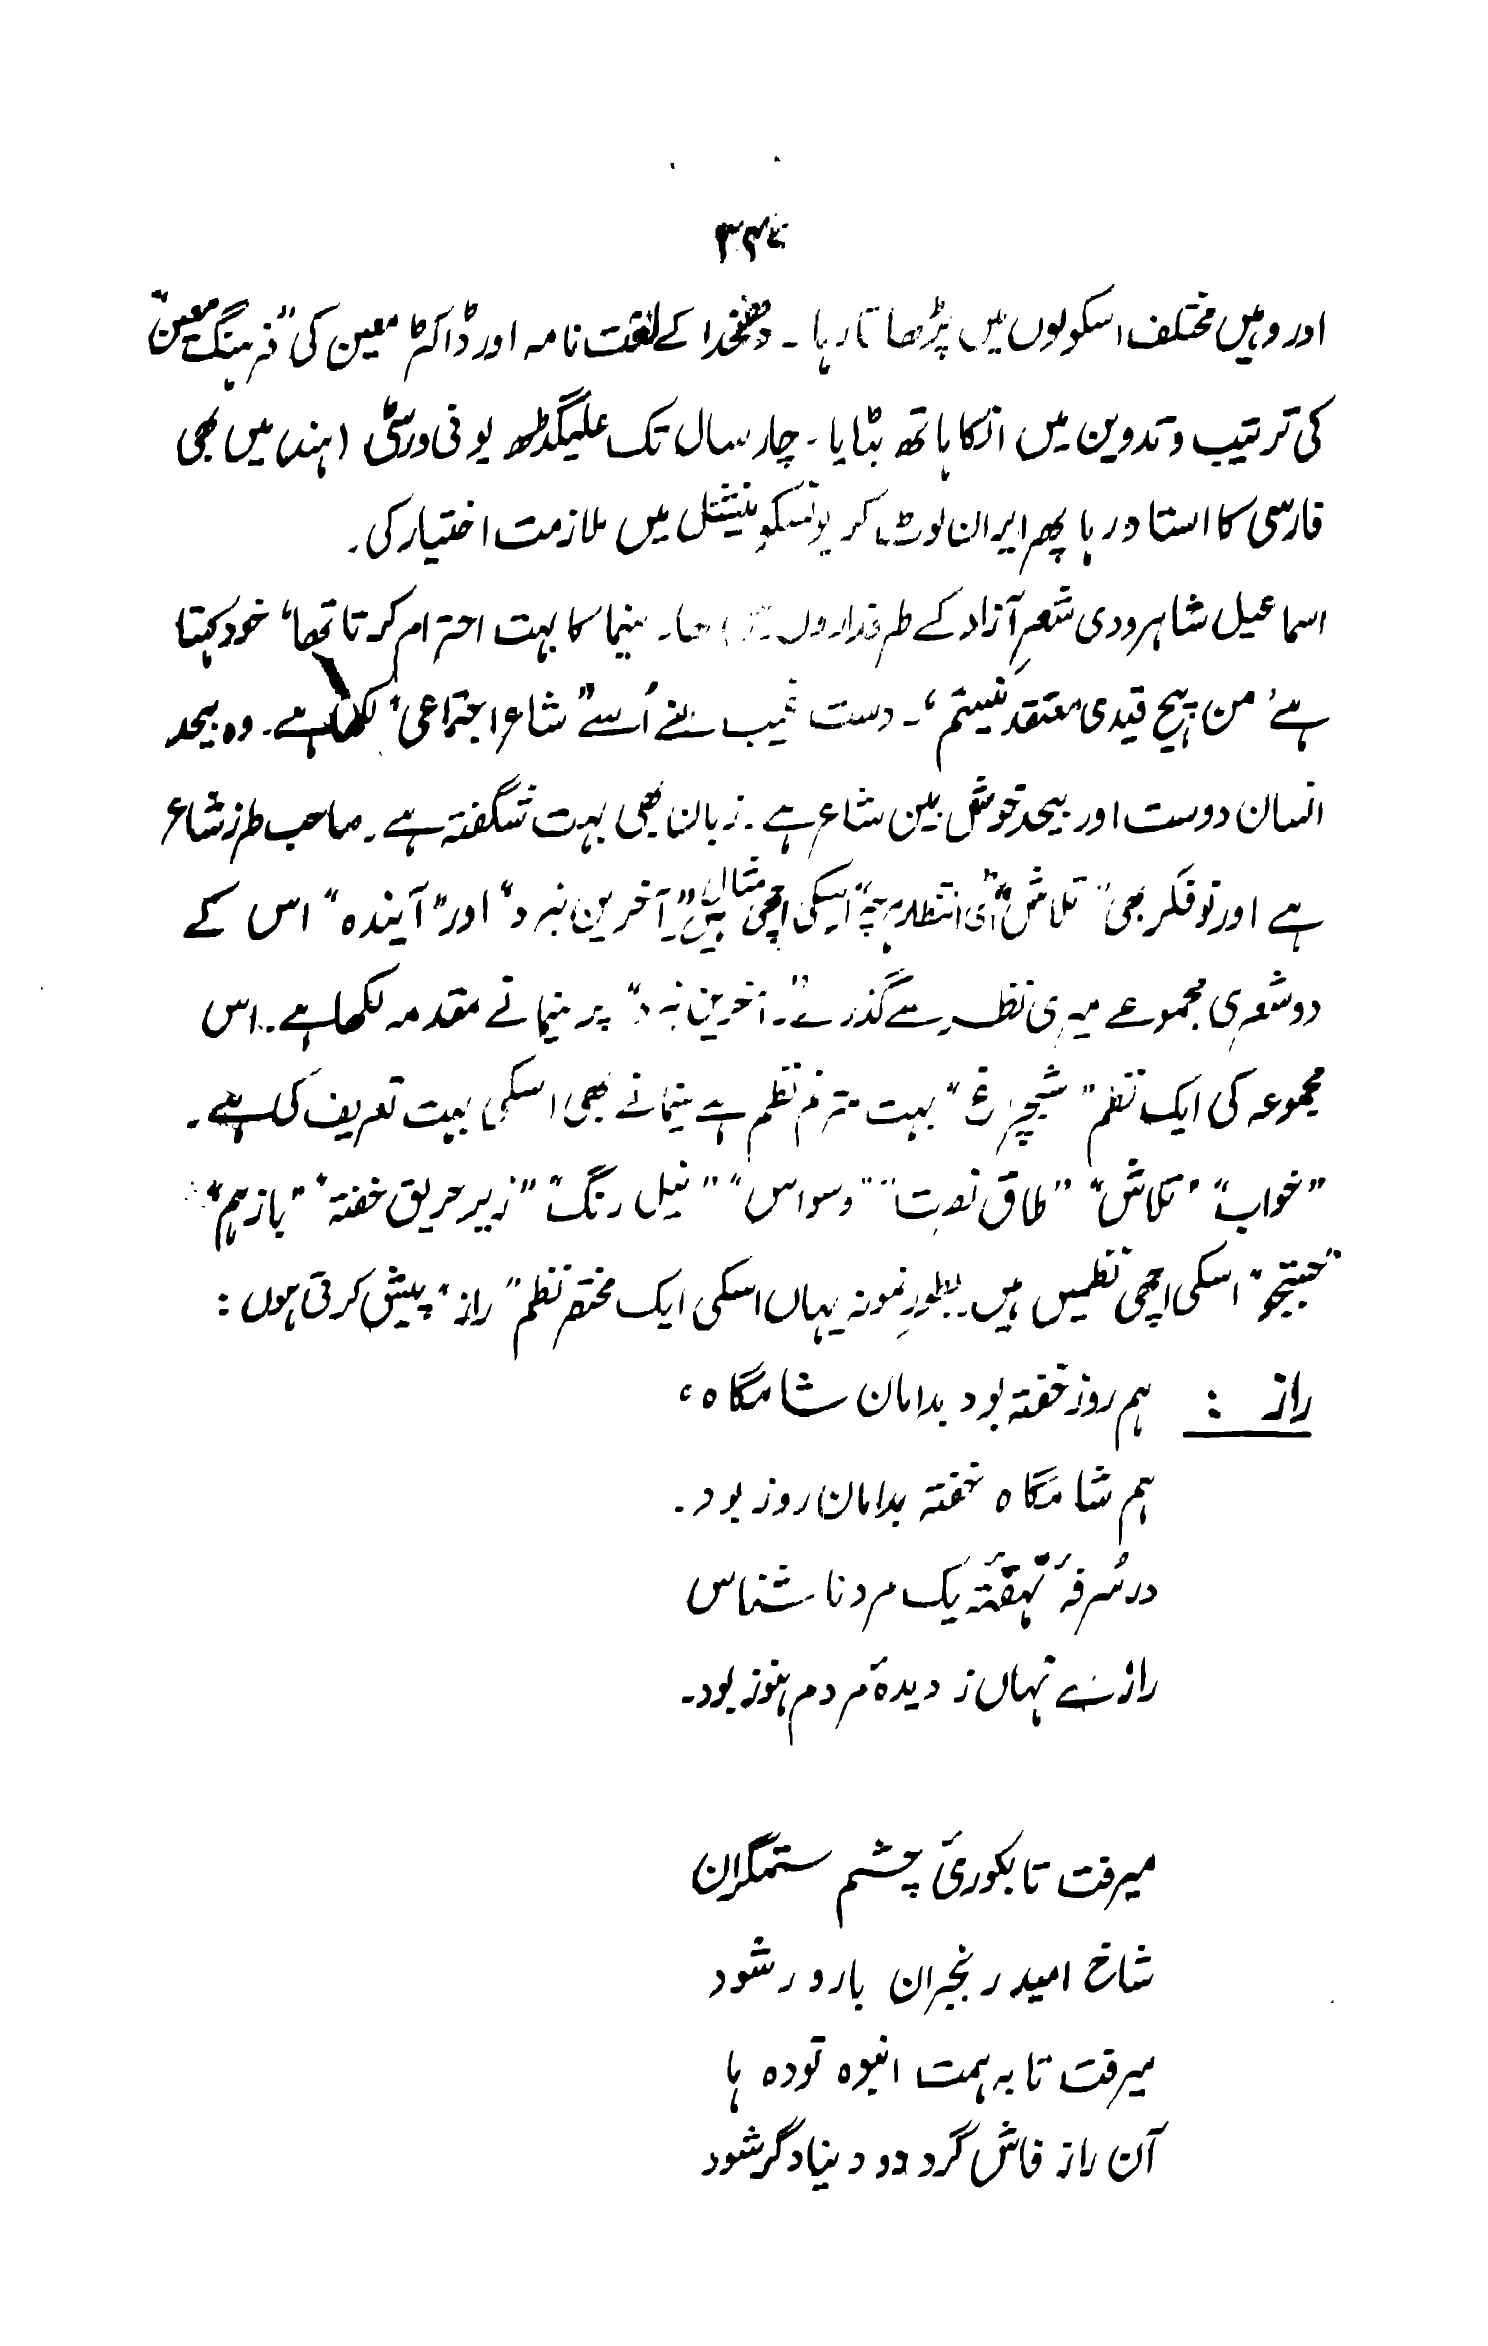 ۳۴۷
اور وہیں مختلف اسکولوں میں پڑھاتا رہا ۔ دھخدا کے لغت نامہ اور ڈاکٹر معین کی "فرہنگ معین"
کی ترتیب و تدوین میں انکا ہاتھ بٹایا ۔ چار سال تک علیگڈھ یونی ورسٹی (ہند) میں بھی
فارسی کا استاد رہا پھر ایران لوٹ کر یونسکو نیشنل میں ملازمت اختیار کی ۔
اسماعیل شاہرودی شعرِ آزاد کے طرفداروں تھا ۔ نیما کا بہت احترام کرتا تھا ' خود کہتا
ہے ' من ہیچ قیدی معتقد نیستم ' ۔ دست غیب نے اُسے "شاعر اجتماعی" لکھا ہے ۔ وہ بیحد
انسان دوست اور بیحد خوش بین شاعر ہے ۔ زبان بھی بہت شگفتہ ہے ۔ صاحب طرز شاعر
ہے اور نو فکر بھی "تلاش" "ای انتظار ہرچہ" اسکی اچھی مثال ہیں ۔ "آخرین نبرد" اور "آیندہ" اس کے
دو شعری مجموعے میری نظر سے گذرے ۔ "آخرین نبرد" پر نیما نے مقدمہ لکھا ہے ۔ اس
مجموعہ کی ایک نظم "شبچراغ" بہت مترنم نظم ہے نیما نے بھی اسکی بہت تعریف کی ہے ۔
"خواب" "تلاش" "طاق نصرت" "وسواس" "نیل رنگ" "زیر حریق خفتہ" "باز ہم"
"جستجو" اسکی اچھی نظمیں ہیں ۔ بطورِ نمونہ یہاں اسکی ایک مختصر نظم "راز" پیش کرتی ہوں :
راز : ہم روز خفتہ بود بدامان شامگاہ ،
ہم شامگاہ خفتہ بدامان روز بود ۔
در سُرفۂ نہفتۂ یک مرد ناشناس
رازے نہاں ز دیدۂ مردم ہنوز بود ۔
میرفت تا بکوریٔ چشم ستمگران
شاخ امید رنجبران بارور شود
میرفت تا بہ ہمت انبوہ تودہ ہا
آن راز فاش گردد و دنیا دگر شود